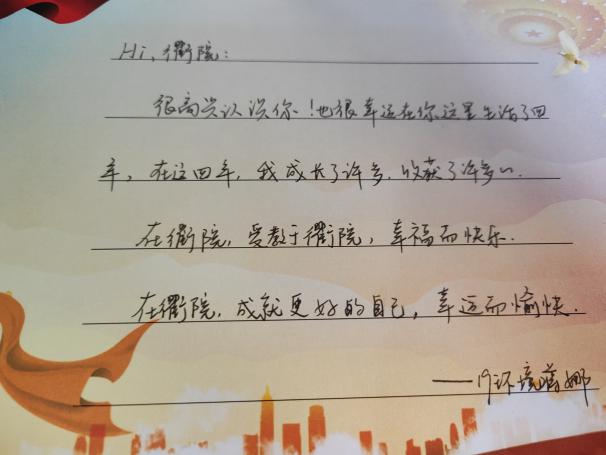 Hi，衢院：
很高兴认识你！也很幸运在你这里生活了四
年，在这四年，我成长了许多．收获了许多～．
在衢院，受教于衢院，幸福而快乐．
在衢院．成就更好的自己，幸运而愉快．
——19环境 娜